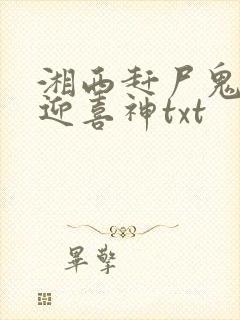 湘西赶尸鬼
迎喜神txt
畢擎